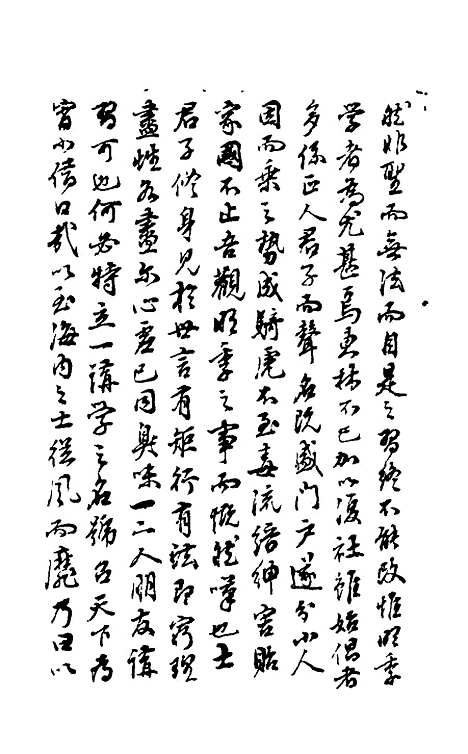 然非聖而無法而自是之習終不能改惟明季
学者為尤甚焉東林不已加以復社雖始倡者
多係正人君子而聲名既盛門戶遂分小人
因而乗之勢成騎虎不至毒流縉紳害貽
家國不止吾觀明季之事而慨然嘆也士
君子修身見於世言有矩行有法即窮理
盡性各盡尔心虚己同臭味一二人朋友講
習可也何必特立一講学之名號召天下為
宵小借口哉以至海内之士從風而靡乃曰以